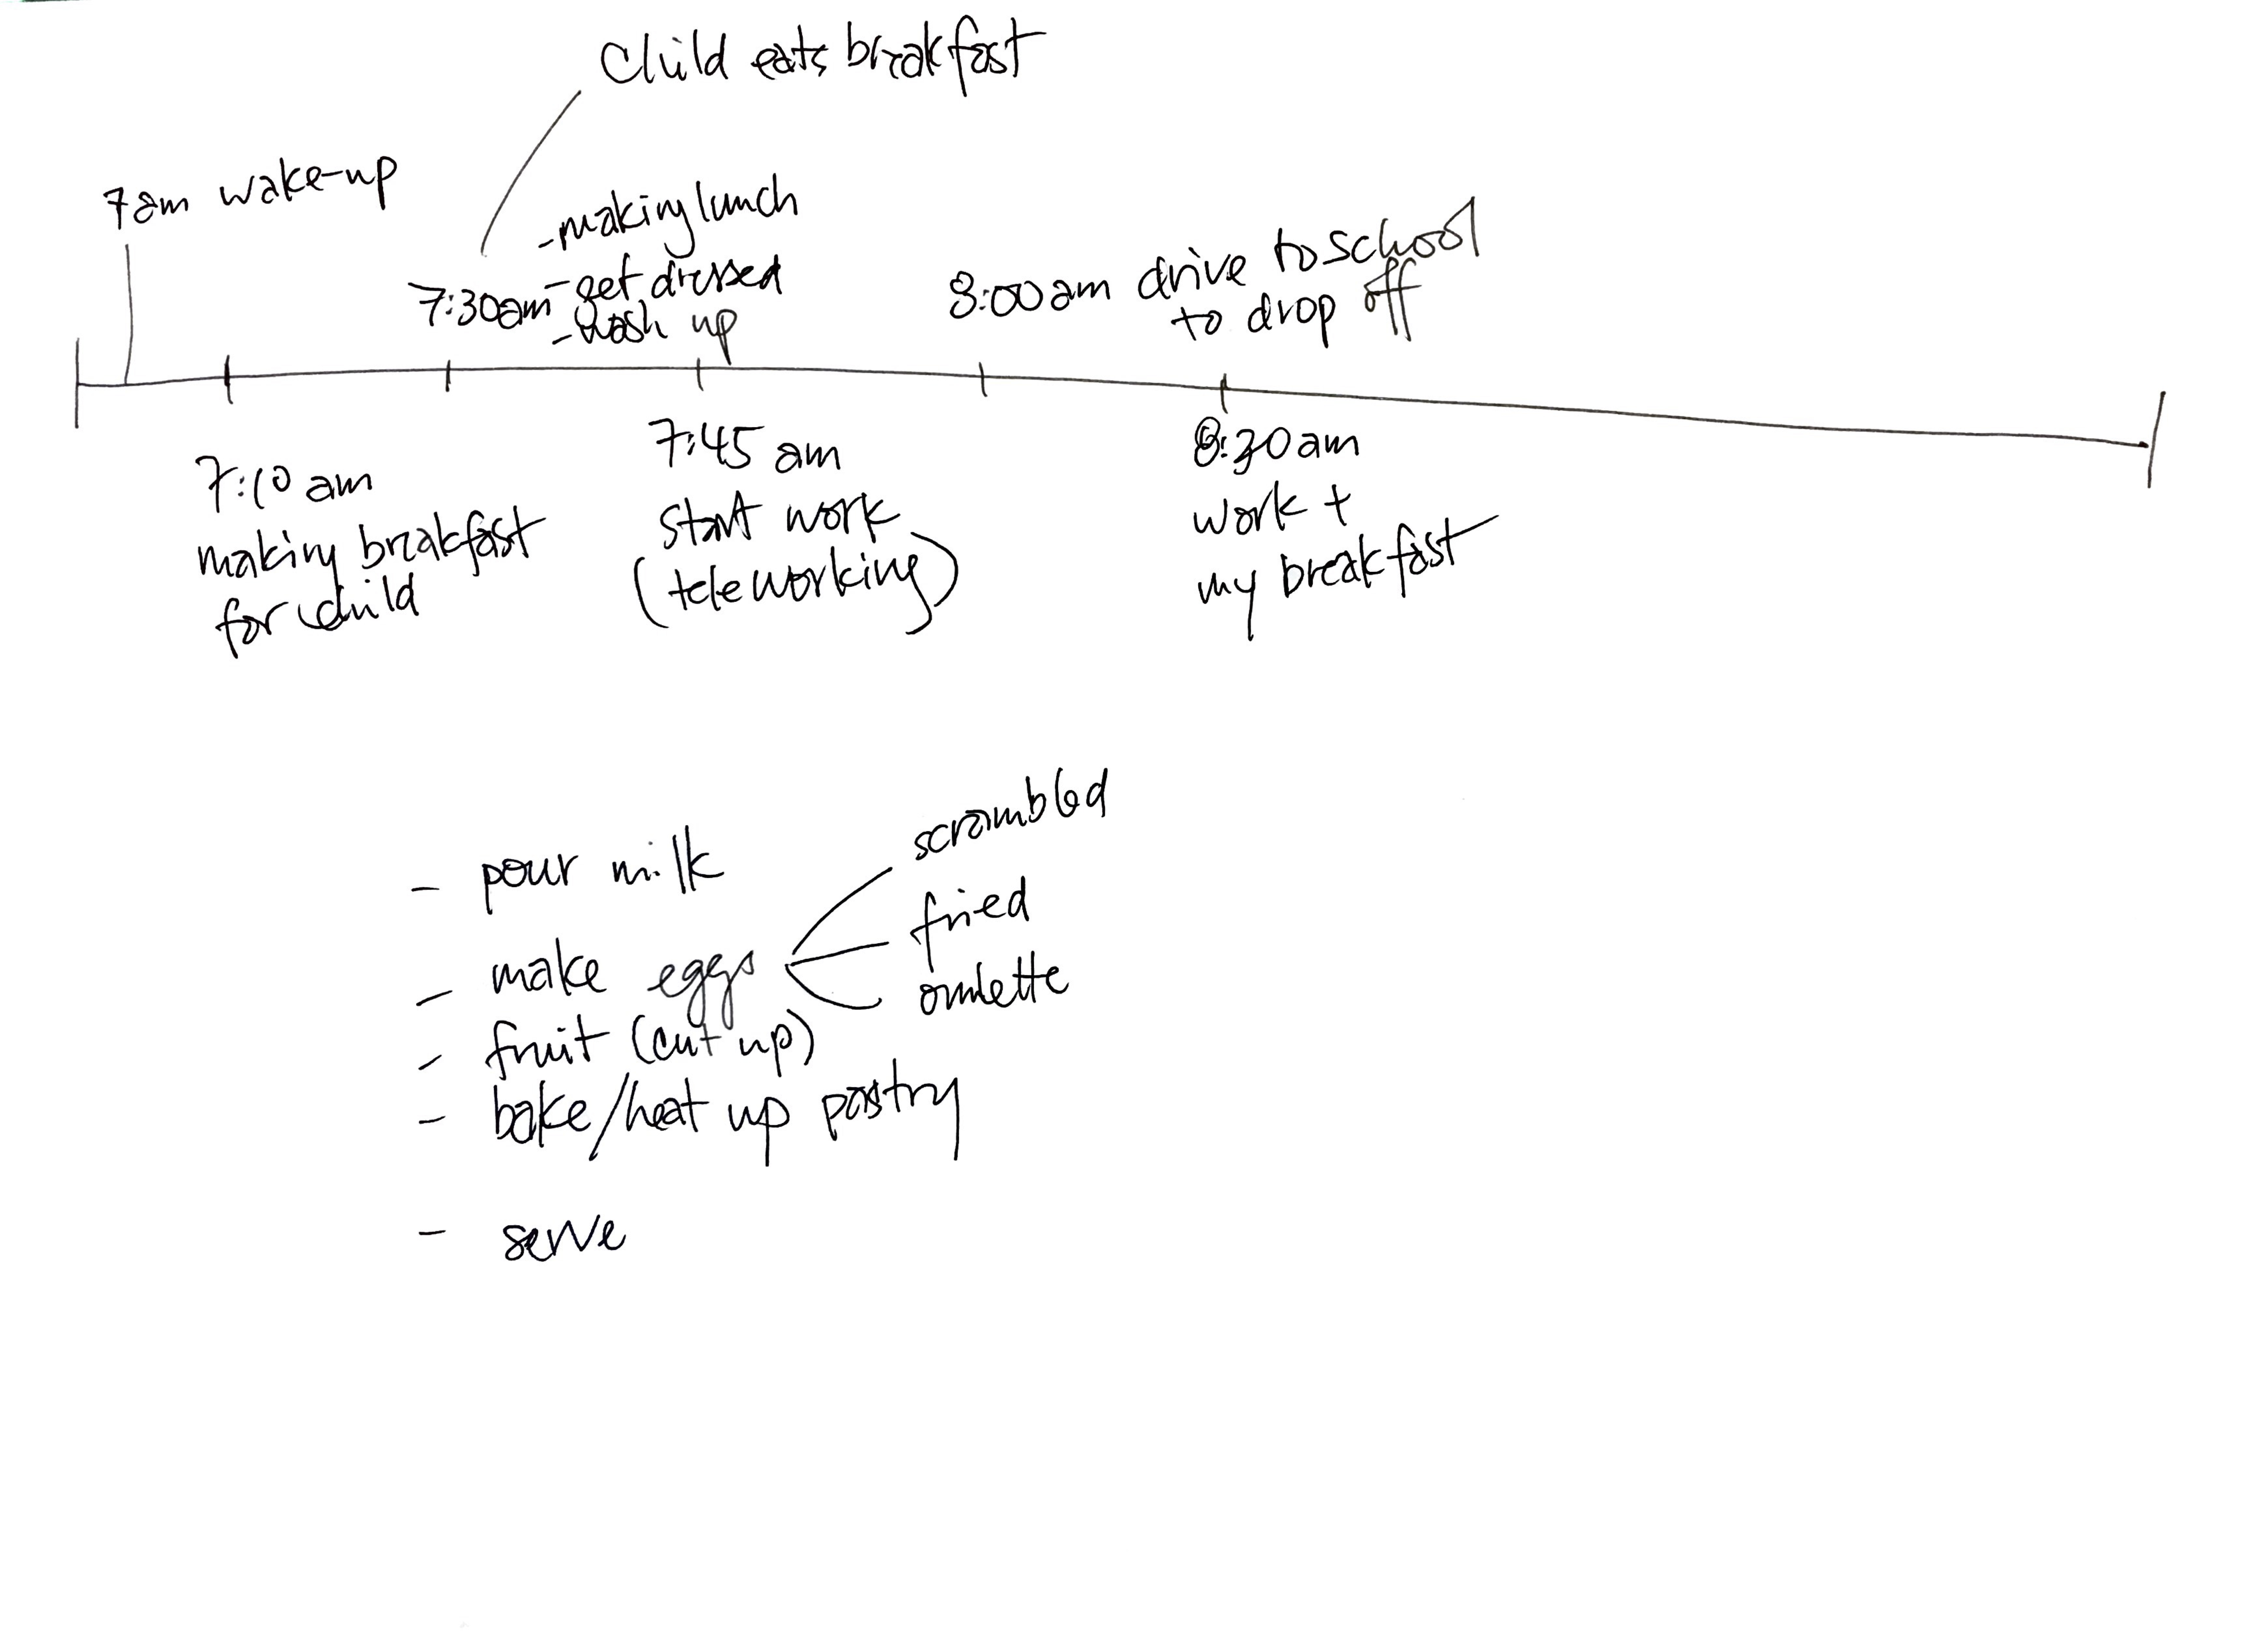 Child eats breakfast
7am wake-up
- making lunch
- get dressed
7:30am - wash up
8:00am drive to school
to drop off
7:10 am
making breakfast
for child
7:45 am
start work
(teleworking)
am
work +
my breakfast
- pour milk
- make eggs
scrambled
fried
omlette
- fruit (cut up)
- bake/heat up pastry
- serve